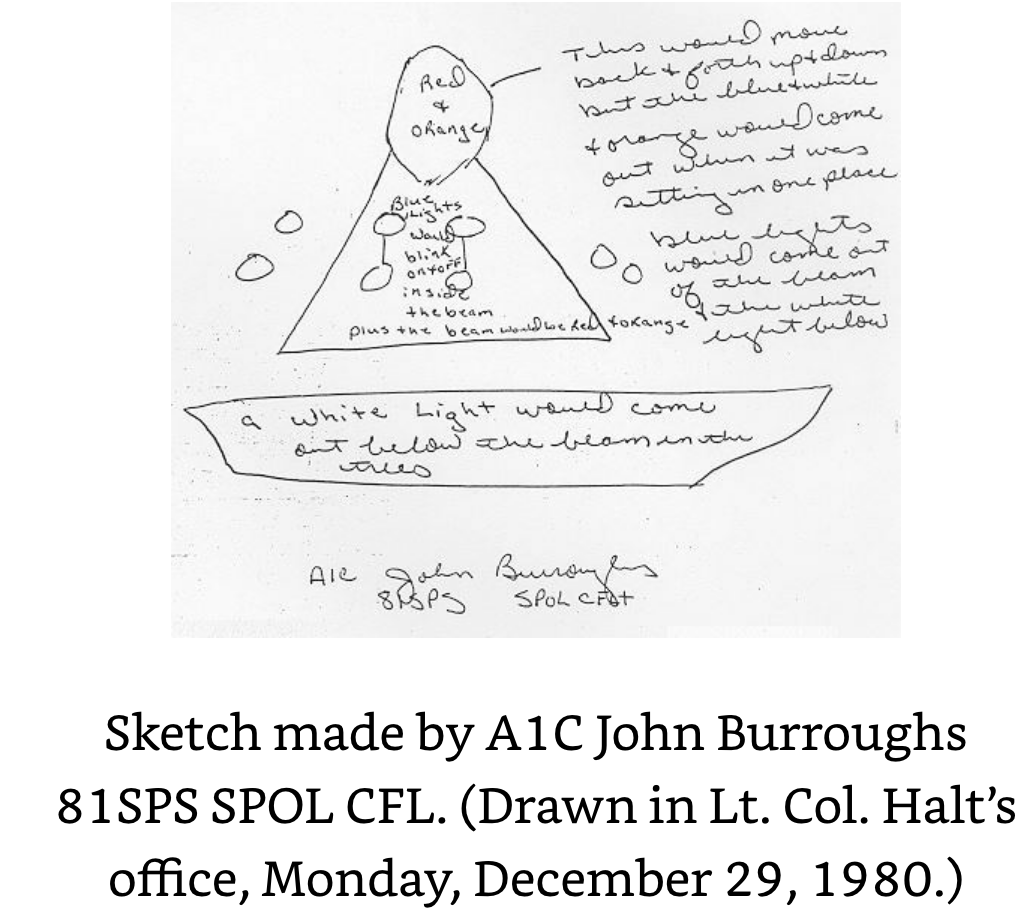 Red
+
Orange
This would move
back + forth up+down
but the blue+white
+ orange would come
out when it was
setting in one place
Blue
Lights
would
blink
on+off
inside
the beam
plus the beam would be Red + orange
blue lights
would come out
of the beam
+ the white
light below
a white Light would come
out below the beam in the
trees
A1C John Burroughs
81SPS SPOL
Sketch made by A1C John Burroughs
81SPS SPOL CFL. (Drawn in Lt. Col. Halt’s
office, Monday, December 29, 1980.)